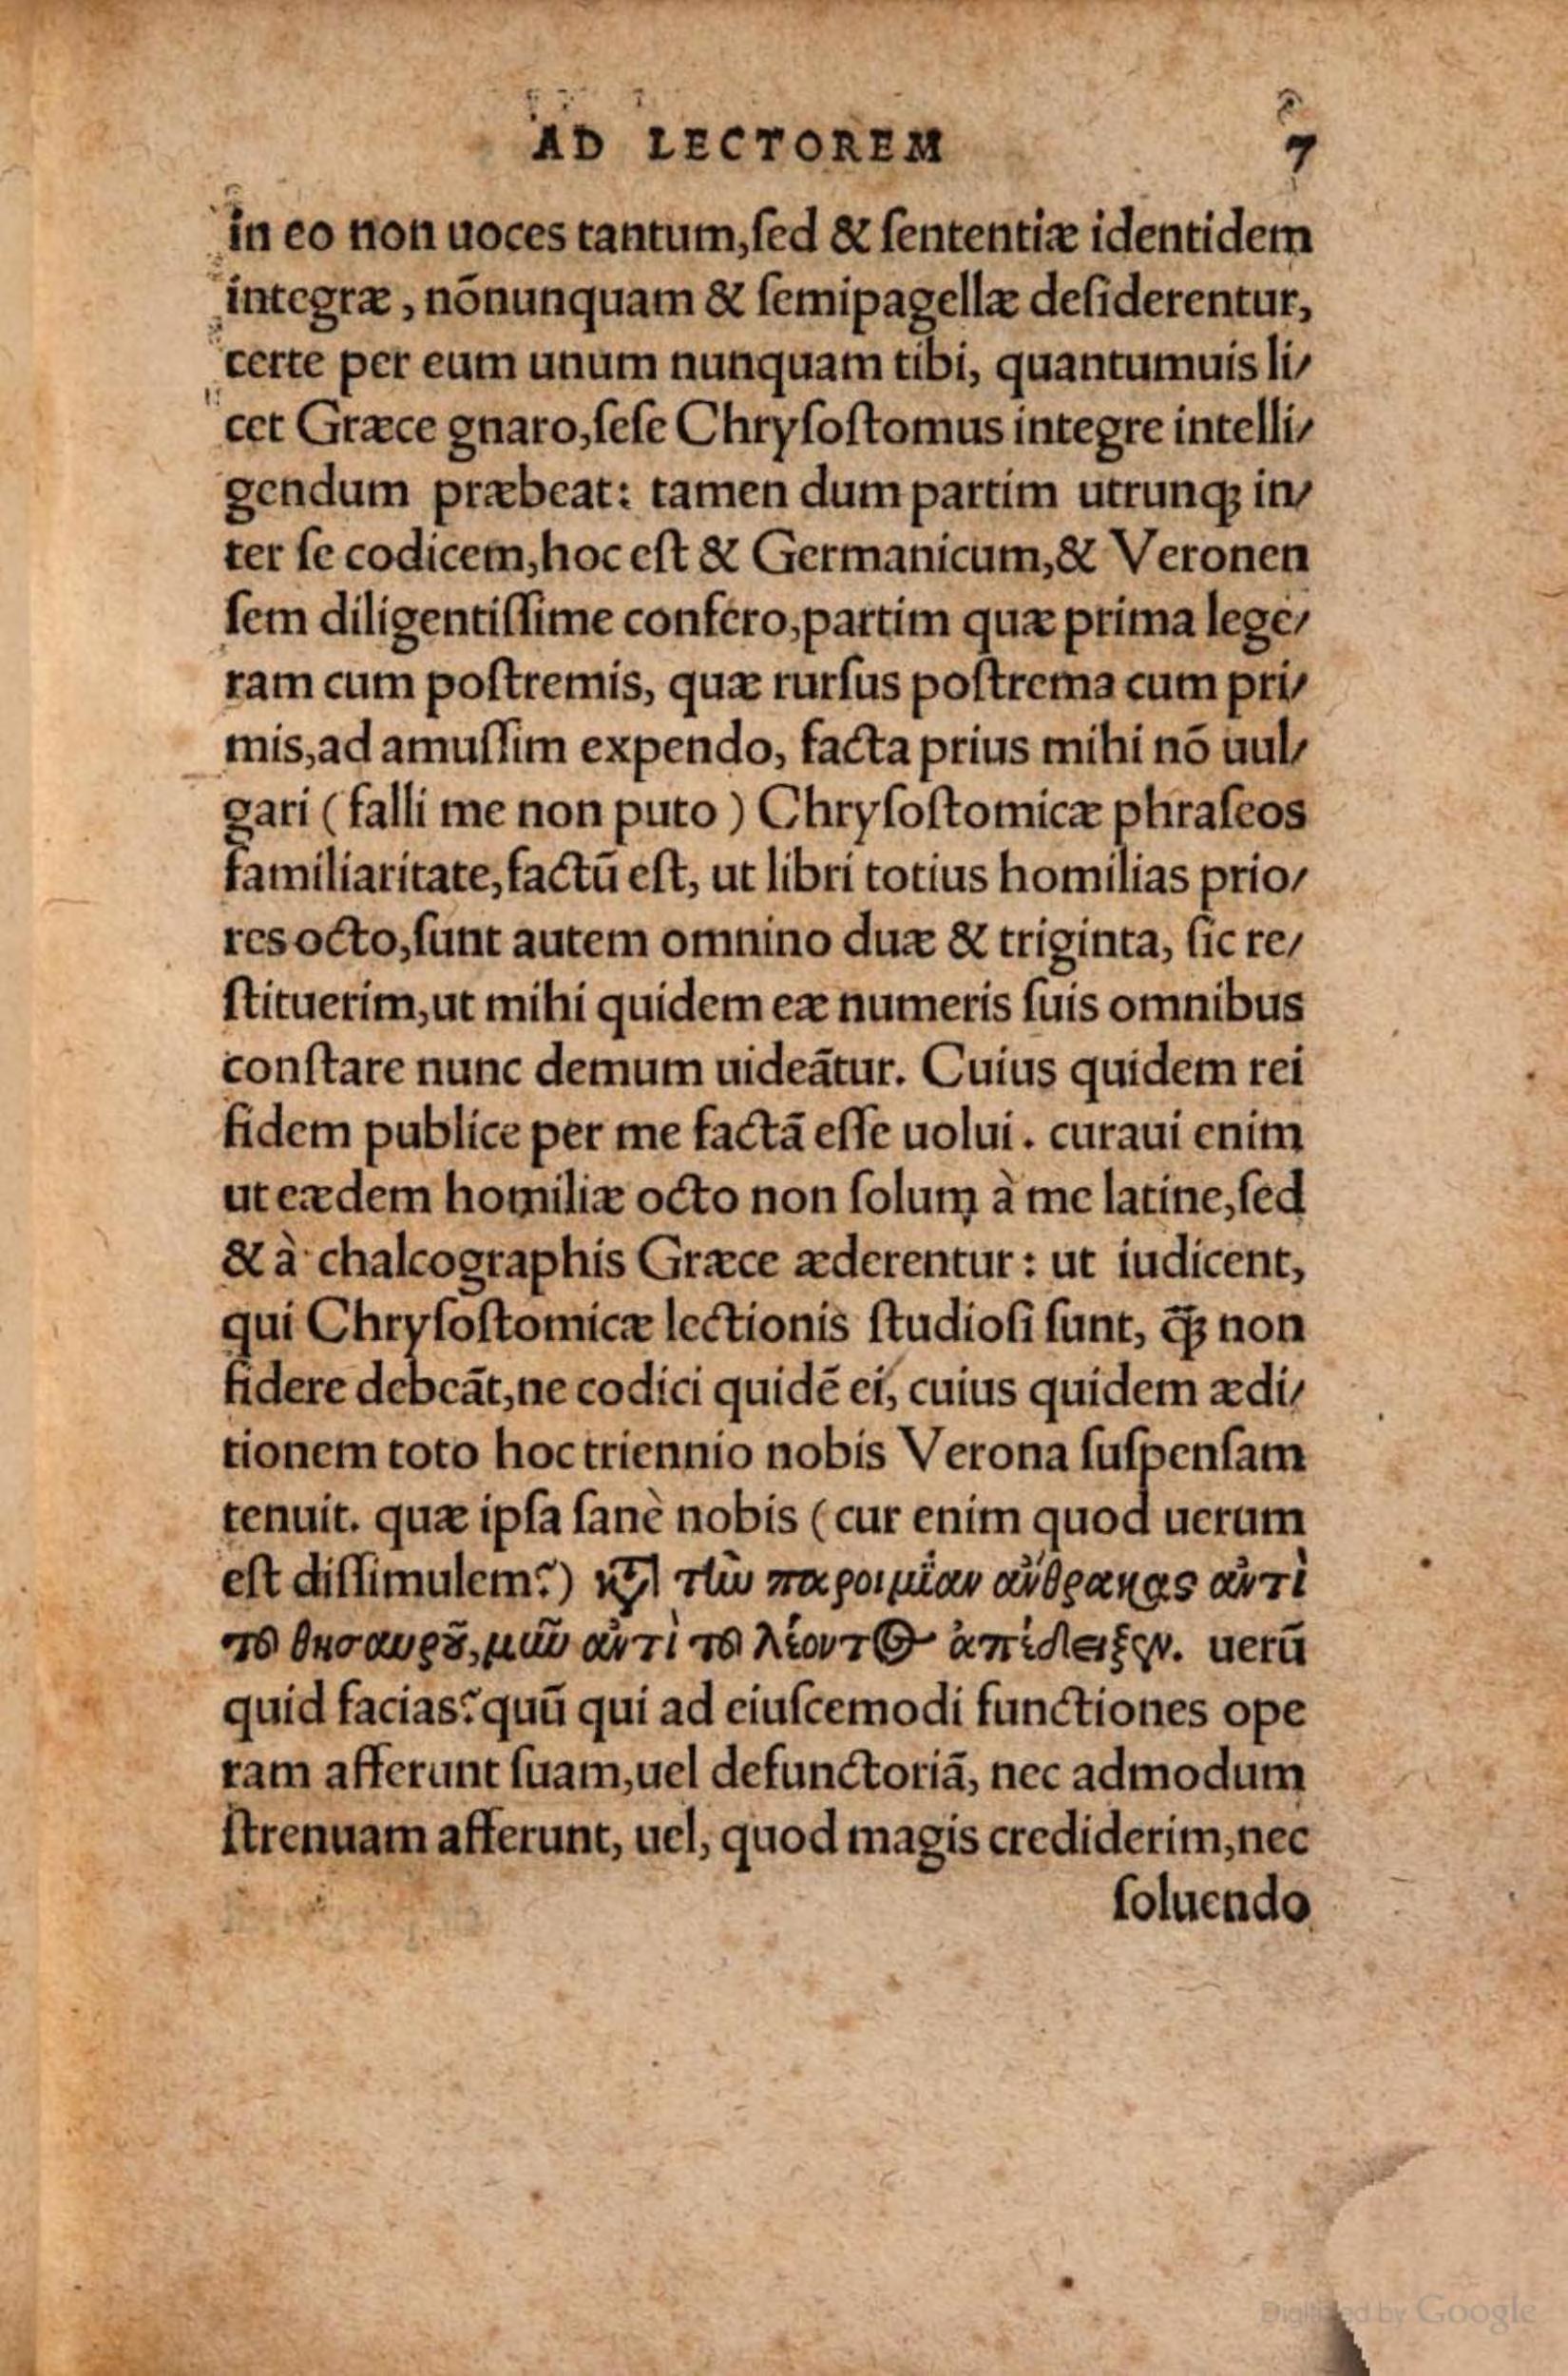 AD LECTOREM 7
in eo non uoces tantum,ſed & ſententiæ identidem
integræ, nõnunquam & ſemipagellæ deſiderentur,
certe per eum unum nunquam tibi, quantumuis li/
cet Græce gnaro,ſeſe Chryſoſtomus integre intelli/
gendum præbeat: tamen dum partim utrunq; in/
ter ſe codicem,hoc eſt & Germanicum,& Veronen
ſem diligentiſſime confero,partim quæ prima lege/
ram cum poſtremis, quæ rurſus poſtrema cum pri/
mis,ad amuſſim expendo, facta prius mihi nõ uul/
gari (falli me non puto) Chryſoſtomicæ phraſeos
familiaritate,factũ eſt, ut libri totius homilias prio/
res octo,ſunt autem omnino duæ & triginta, ſic re/
ſtituerim,ut mihi quidem eæ numeris ſuis omnibus
conſtare nunc demum uideãtur. Cuius quidem rei
fidem publice per me factã eſſe uolui. curaui enim
ut eædem homiliæ octo non ſolum à me latine,ſed
& à chalcographis Græce æderentur: ut iudicent,
qui Chryſoſtomicæ lectionis ſtudioſi ſunt, q̃q; non
fidere debeãt,ne codici quidẽ ei, cuius quidem ædi/
tionem toto hoc triennio nobis Verona ſuſpenſam
tenuit. quæ ipſa ſanè nobis (cur enim quod uerum
eſt diſſimulem?) κỳ τἰὼ παροιμίαν ἄνθρακας ἀντὶ
τοῦ θησαυροῦ,μῦν ἀντὶ τοῦ λέοντος ἀπέδειξεν. uerũ
quid facias? quũ qui ad eiuſcemodi functiones ope
ram afferunt ſuam,uel defunctoriã, nec admodum
ſtrenuam afferunt, uel, quod magis crediderim,nec
ſoluendo
Digitized by Google